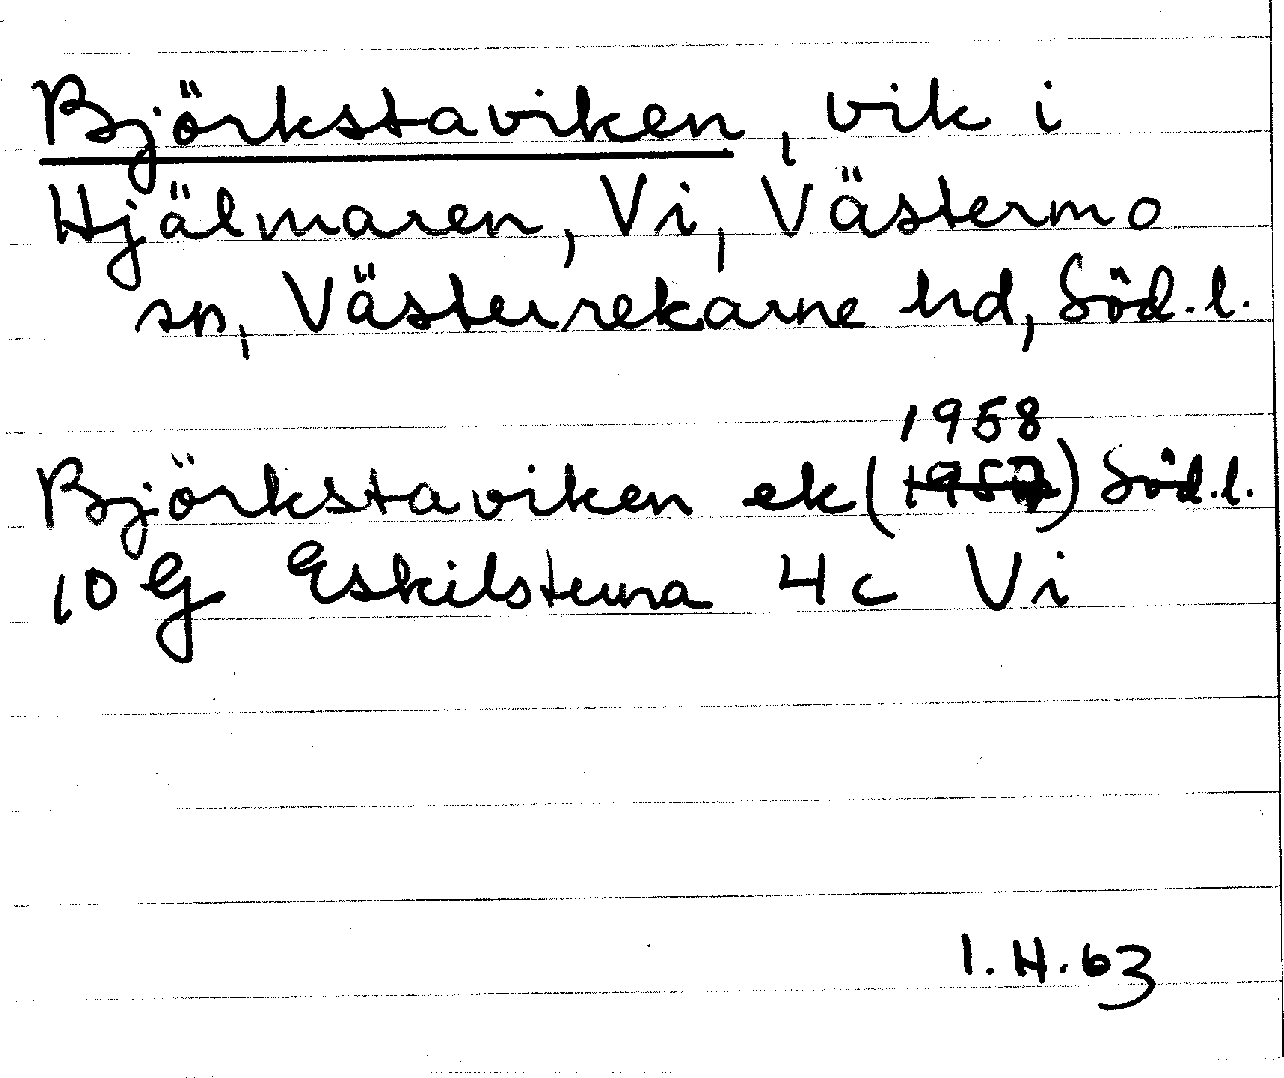 Björkstaviken, vik i
Hjälmaren, Vi, Västermo
sn, Västerrekarne hd, Söd.l.
1958
Björkstaviken ek (1957) Söd.l.
10 G Eskilstuna 4c Vi
1.H.63